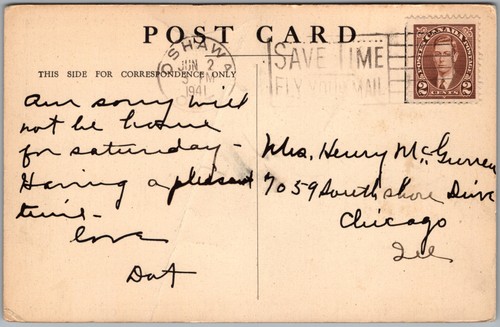 POST CARD
THIS SIDE FOR CORRESPONDENCE ONLY
OSHAWA
JUN 2
PM
1941
SAVE TIME
FLY YOUR MAIL
POSTES CANADA POSTAGE
2 CENTS 2
Am sorry will
not be home
for saturday -
Having a pleasant
time -
love
Dot
Mrs. Henry McGurren
7059 South shore Drive
Chicago
Ill